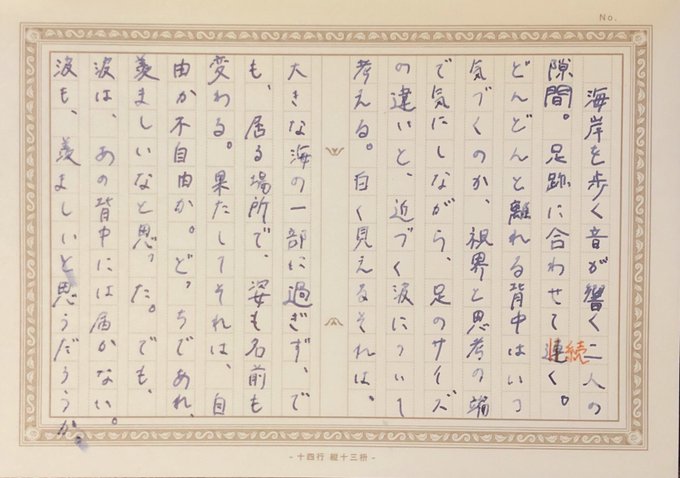 No.
海岸を歩く音が響く二人の
隙間。足跡に合わせて連く。
続
どんどんと離れる背中はいつ
気づくのか、視界と思考の端
で気にしながら、足のサイズ
の違いと、近づく波について
考える。白く見えるそれは、
大きな海の一部に過ぎず、で
も、居る場所で、姿も名前も
変わる。果たしてそれは、自
由か不自由か。どっちであれ、
羨ましいなと思った。でも、
波は、あの背中には届かない。
波も、羨ましいと思うだろうか。
- 十四行 縦十三桝 -